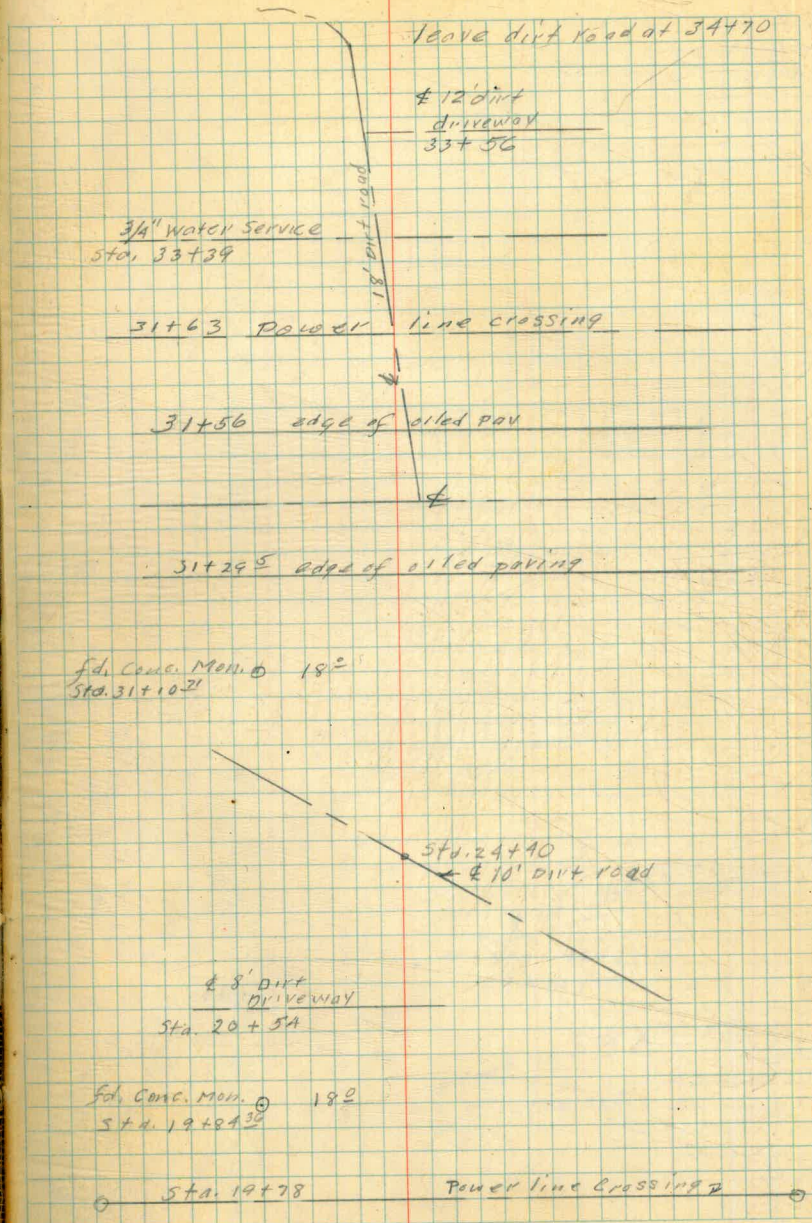 leave dirt road at 34+70
℄ 12' dirt
driveway
33+56
18' Dirt road
3/4" Water Service
Sta. 33+39
31+63 Power line crossing
℄
31+56 edge of oiled pav
℄
31+29⁵ edge of oiled paving
fd. Conc. Mon. ⊙ 18⁰
Sta. 31+10²¹
Sta. 24+40
℄ 10' Dirt road
℄ 8' Dirt
Driveway
Sta. 20+54
fd. Conc. Mon. ⊙ 18⁰
Sta. 19+84³⁰
Sta. 19+78 Power line Crossing